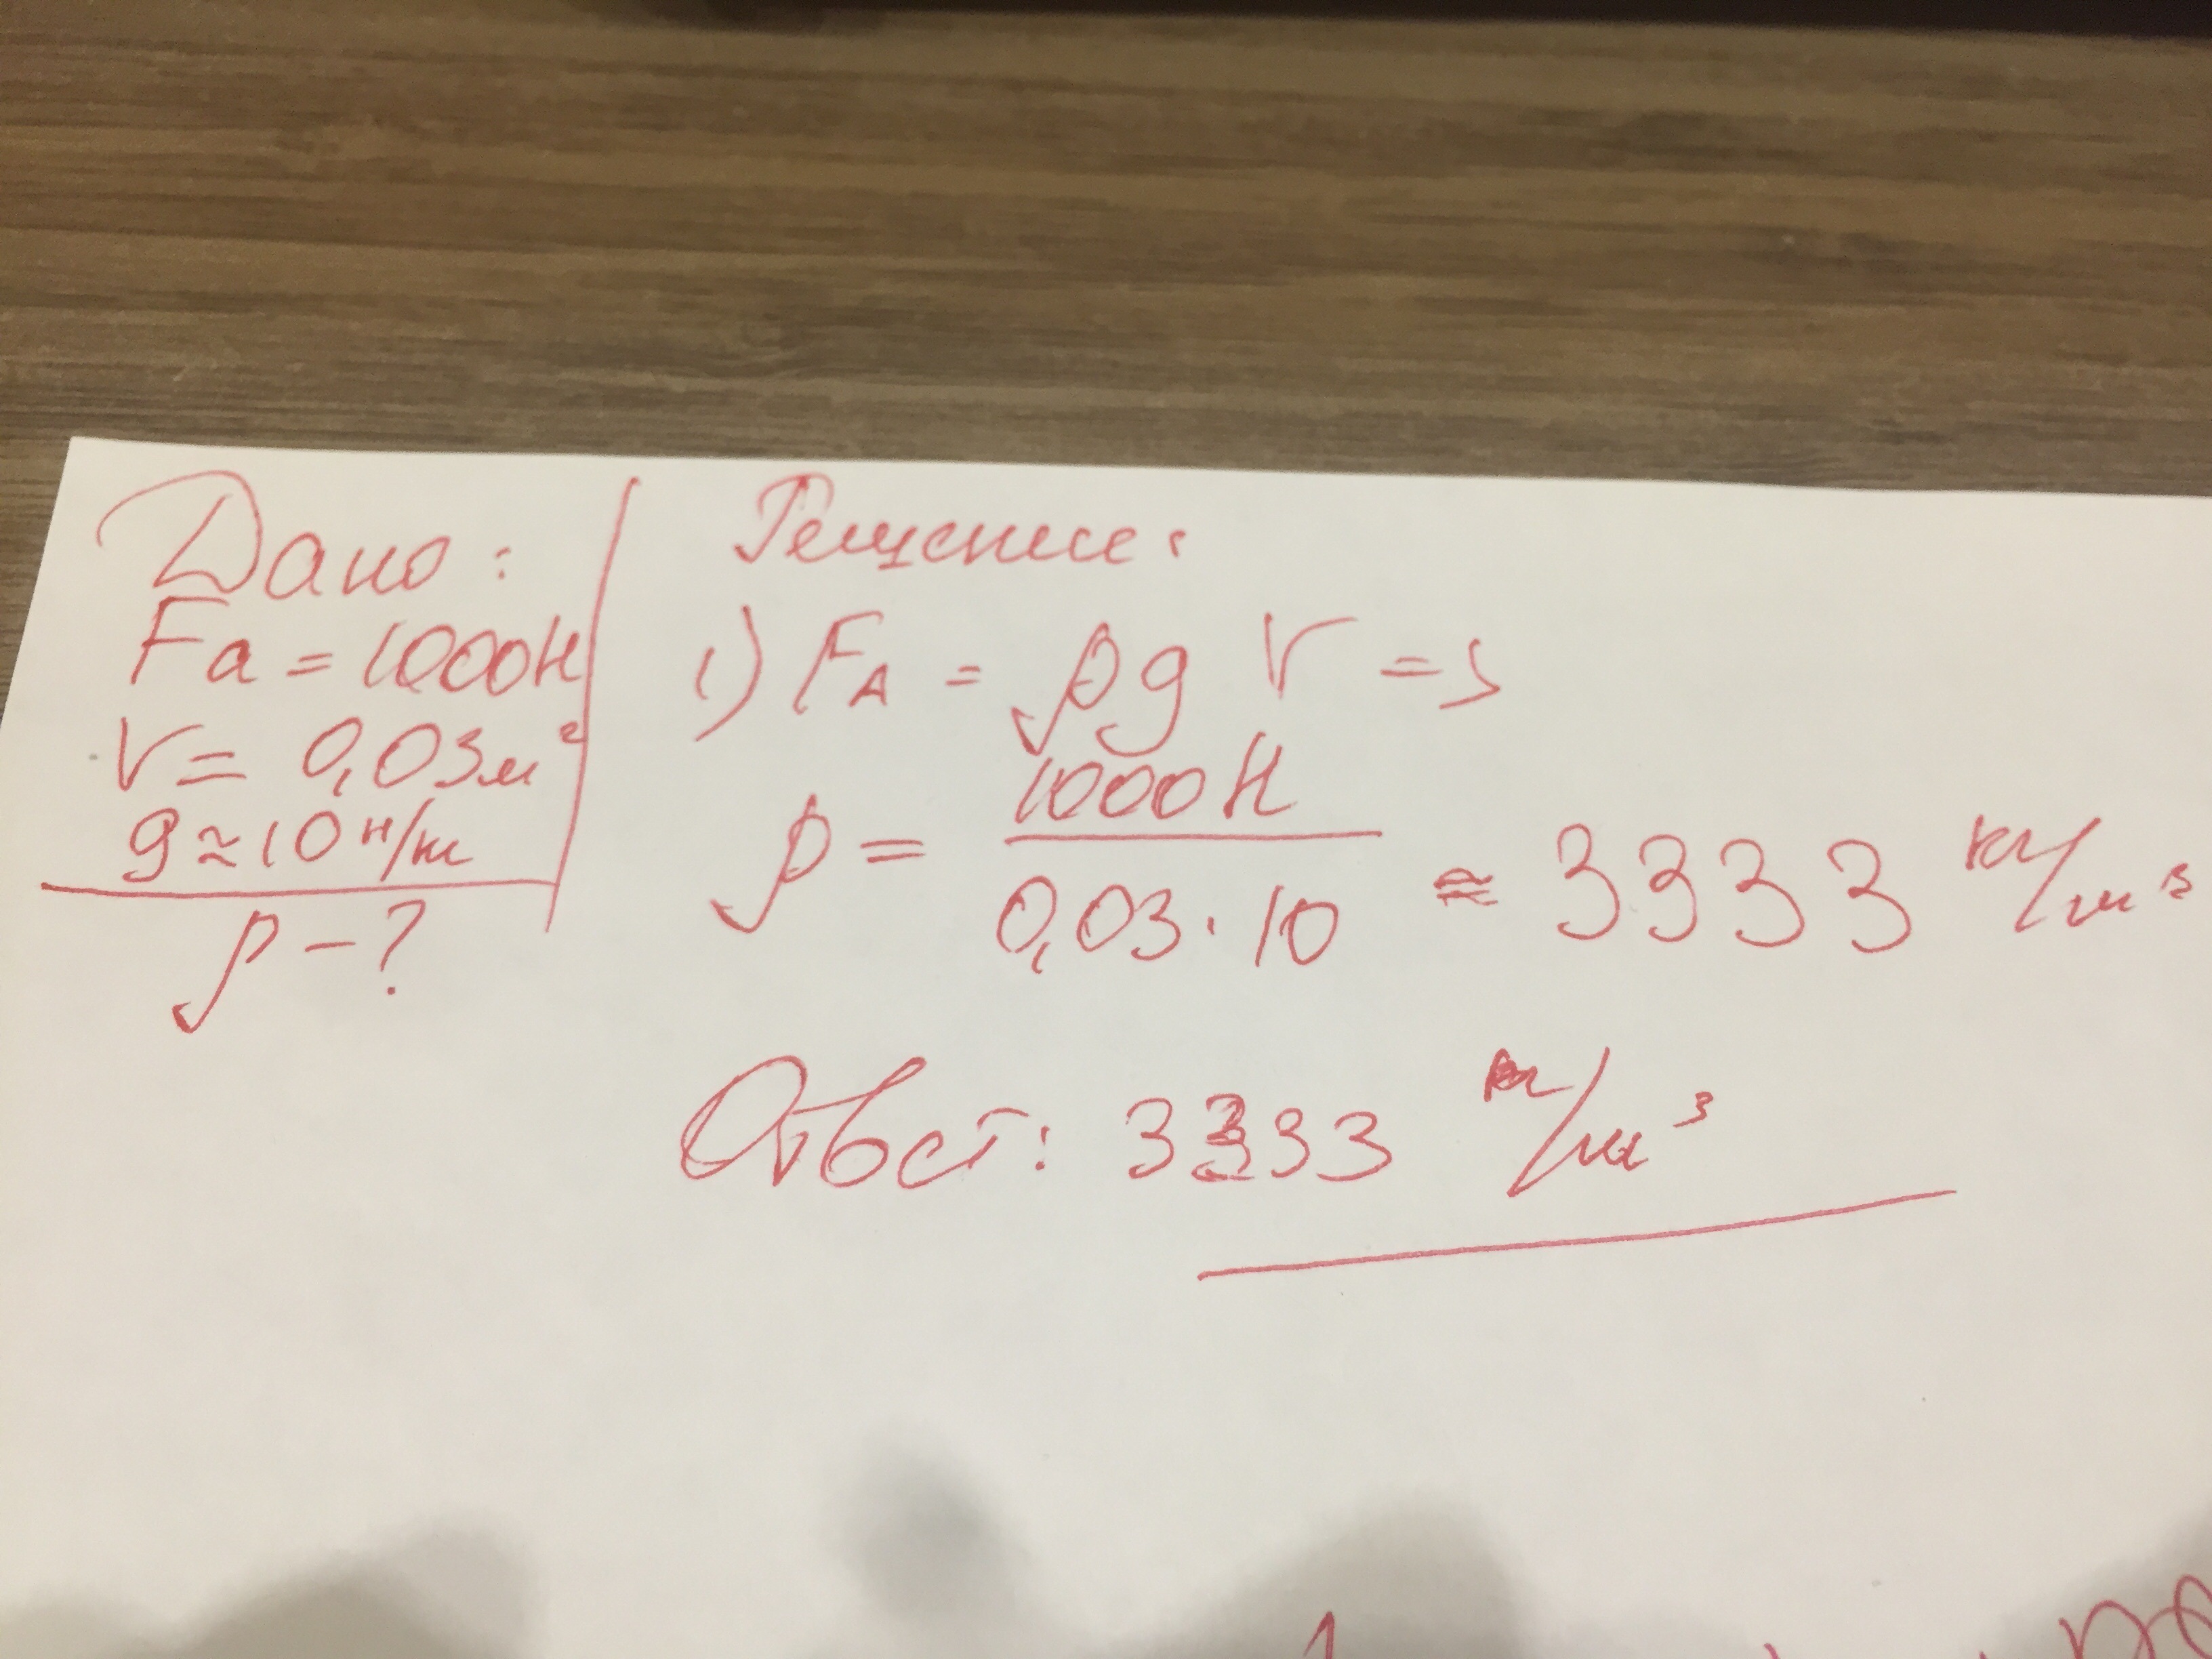 Дано:
Fa = 1000Н
V = 0,03м²
g ≈ 10 н/кг
ρ - ?
Решение:
1) FA = ρg V =>
ρ = 1000Н / 0,03 · 10 ≈ 3333 кг/м³
Ответ: 3333 кг/м³